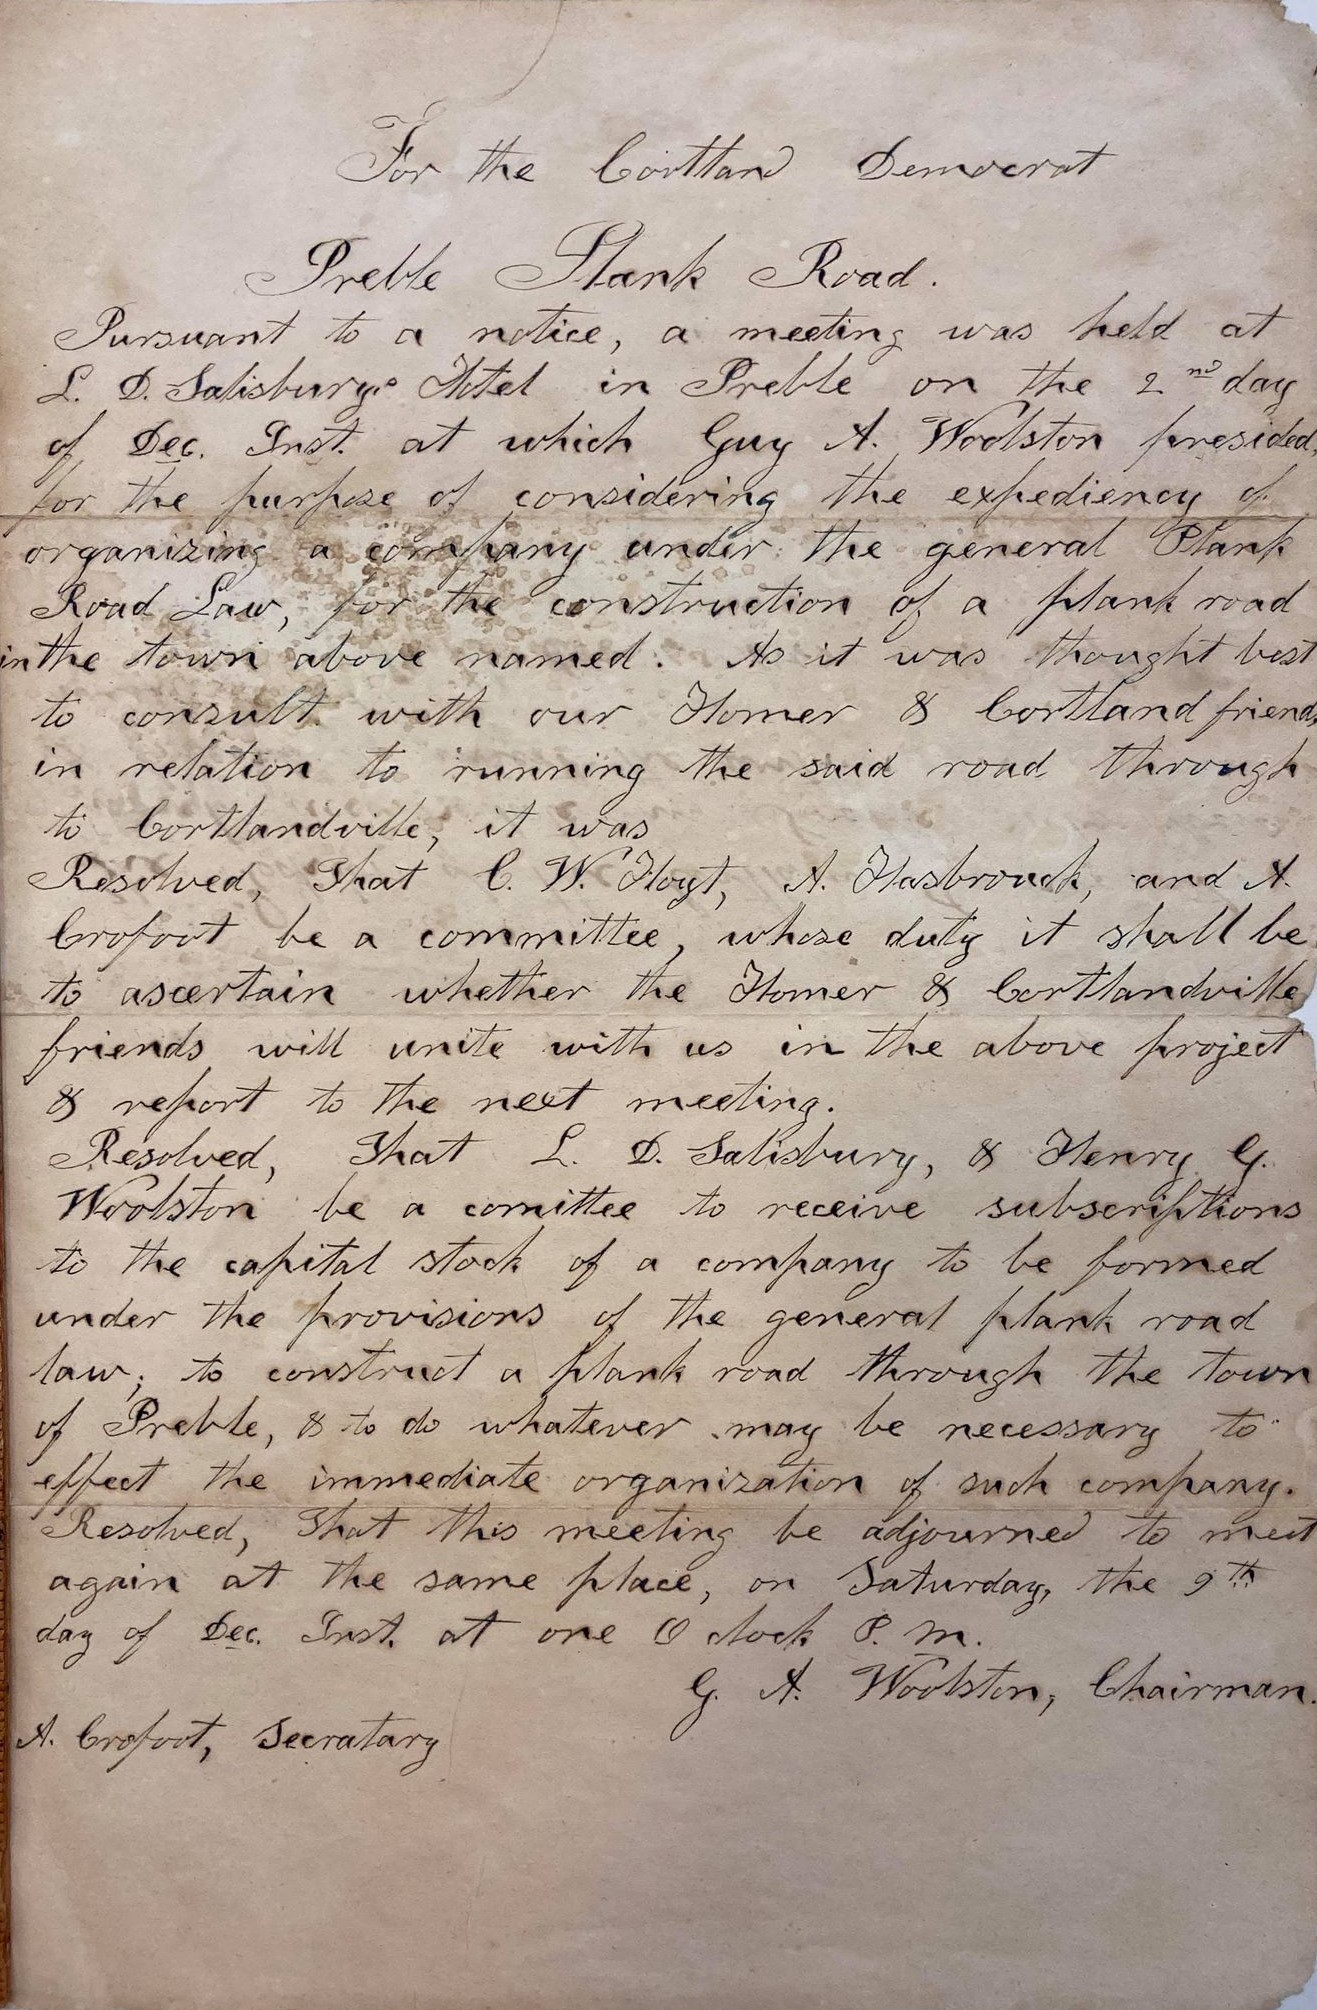 For the Cortland Democrat
Preble Plank Road.
Pursuant to a notice, a meeting was held at
L. D. Salisburys Hotel in Preble on the 2nd day
of Dec. Inst. at which Guy A. Woolston presided,
for the purpose of considering the expediency of
organizing a company under the general Plank
Road Law, for the construction of a plank road
in the town above named. As it was thought best
to consult with our Homer & Cortland friends
in relation to running the said road through
to Cortlandville, it was
Resolved, That C. W. Hoyt, A. Hasbrouck, and A.
Crofoot be a committee, whose duty it shall be
to ascertain whether the Homer & Cortlandville
friends will unite with us in the above project
& report to the next meeting.
Resolved, That L. D. Salisbury, & Henry G.
Woolston be a comittee to receive subscriptions
to the capital stock of a company to be formed
under the provisions of the general plank road
law; to construct a plank road through the town
of Preble, & to do whatever may be necessary to
effect the immediate organization of such company.
Resolved, That this meeting be adjourned to meet
again at the same place, on Saturday, the 9th
day of Dec. Inst. at one O clock P. M.
G. A. Woolston, Chairman.
A. Crofoot, Secratary